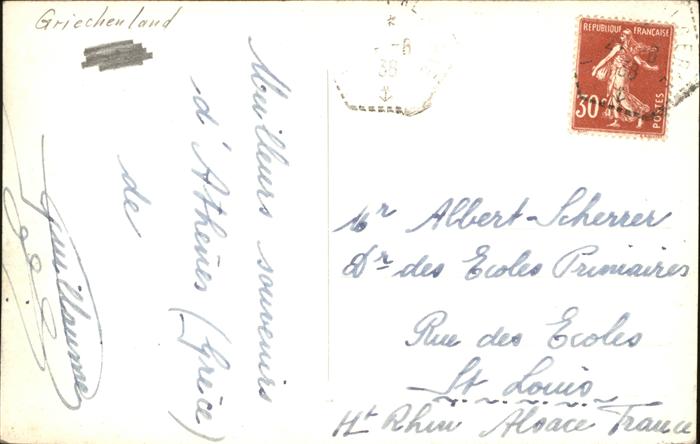 Griechenland
Meilleurs souvenirs
d'Athènes (Grèce)
de
Guillaume
RÉPUBLIQUE FRANÇAISE
30
POSTES
-6
38
38
Mr Albert-Scherrer
Dr des Ecoles Primaires
Rue des Ecoles
St Louis
Ht Rhin Alsace France